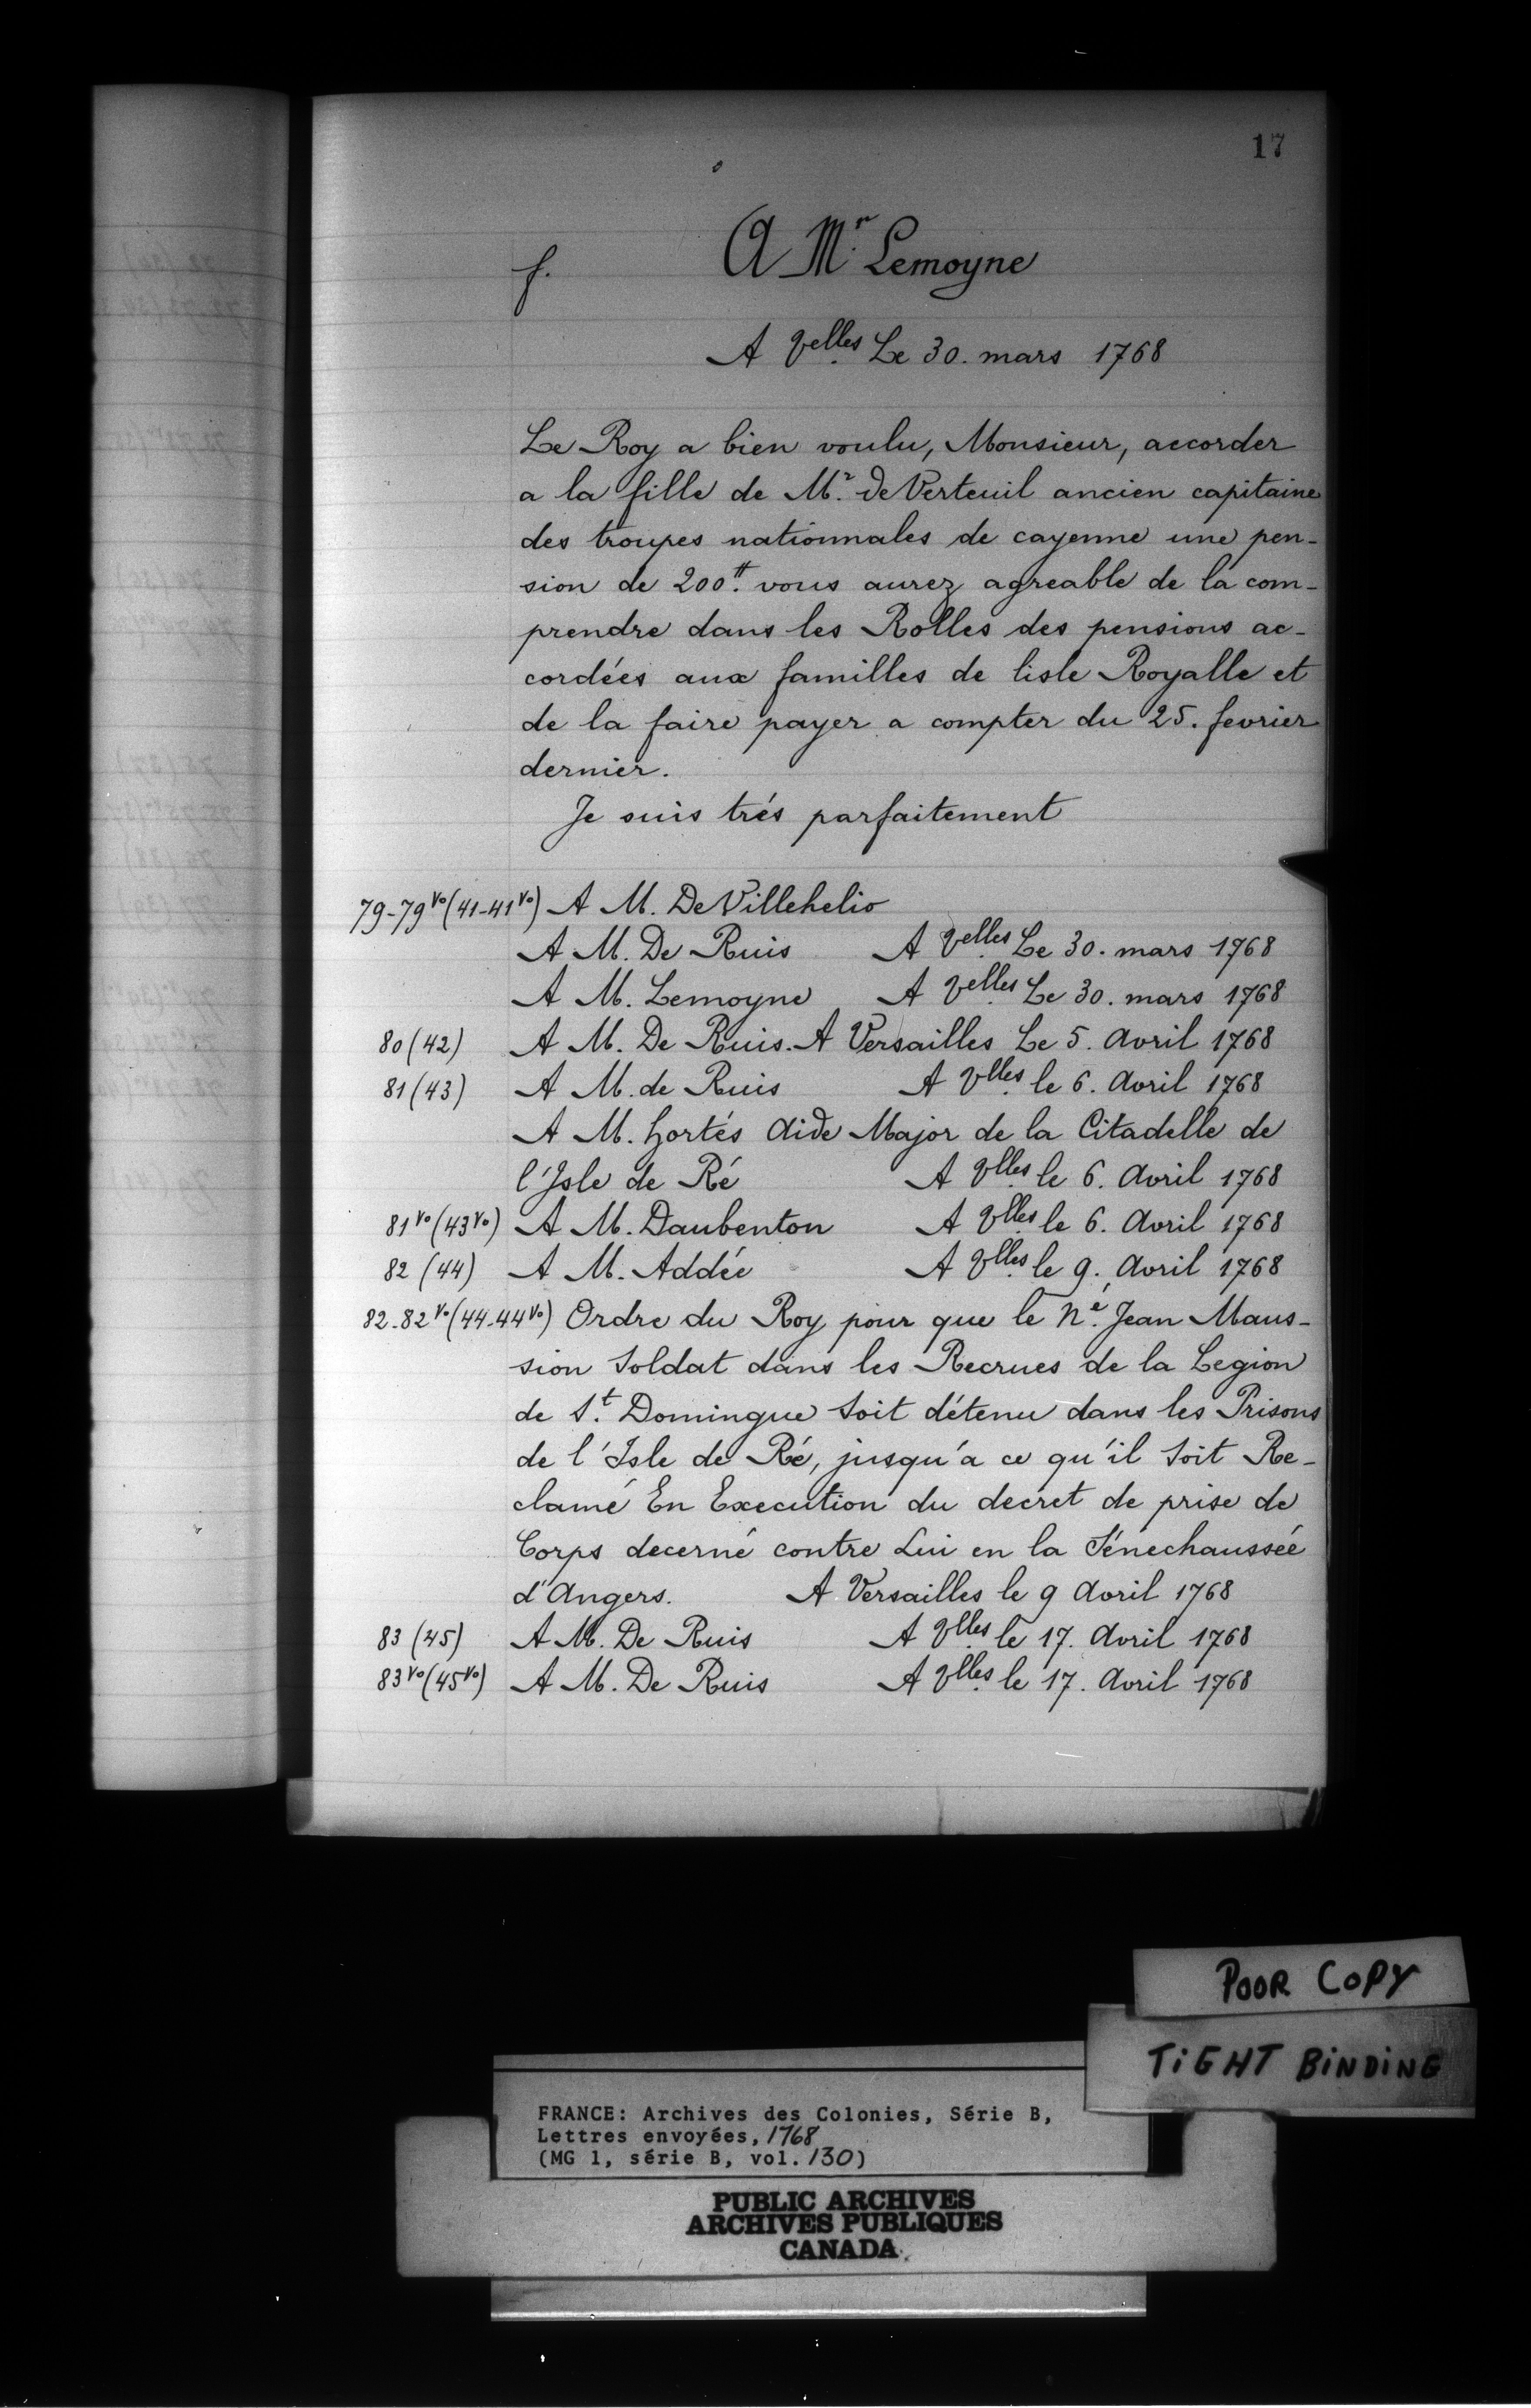 17
f. A Mr Lemoyne
A Velles Le 30. mars 1768
Le Roy a bien voulu, Monsieur, accorder
a la fille de Mr. de Verteuil ancien capitaine
des troupes nationnales de cayenne une pen-
sion de 200tt. vous aurez agreable de la com-
prendre dans les Rolles des pensions ac-
cordées aux familles de lisle Royalle et
de la faire payer a compter du 25. fevrier
dernier.
Je suis trés parfaitement
79-79vo (41-41vo) A M. De Villehelio
A M. De Ruis A Velles Le 30. mars 1768
A M. Lemoyne A Velles Le 30. mars 1768
80 (42) A M. De Ruis. A Versailles Le 5. Avril 1768
81 (43) A M. de Ruis A Vlles le 6. Avril 1768
A M. hortés Aide Major de la Citadelle de
l'Isle de Ré A Vlles le 6. Avril 1768
81vo (43vo) A M. Daubenton A Vlles le 6. Avril 1768
82 (44) A M. Addée A Vlles le 9. Avril 1768
82-82vo (44-44vo) Ordre du Roy pour que le Né. Jean Maus-
sion Soldat dans les Recrues de la Legion
de St. Domingue soit détenu dans les Prisons
de l'Isle de Ré, jusqu'a ce qu'il soit Re-
clamé En Execution du decret de prise de
Corps decerné contre Lui en la Sénechaussée
d'Angers. A Versailles le 9 Avril 1768
83 (45) A M. De Ruis A Vlles le 17. Avril 1768
83vo (45vo) A M. De Ruis A Vlles le 17. Avril 1768
POOR COPY
TIGHT BINDING
FRANCE: Archives des Colonies, Série B,
Lettres envoyées, 1768
(MG 1, série B, vol. 130)
PUBLIC ARCHIVES
ARCHIVES PUBLIQUES
CANADA